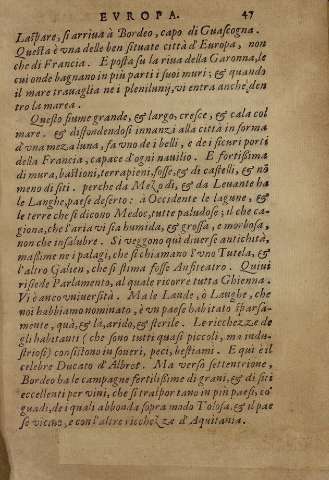 EVROPA. 47
Laspare, si arriua à Bordeo, capo di Guascogna.
Questa è vna delle ben situate città d'Europa, non
che di Francia. E posta su la riua della Garonna, le
cui onde bagnano in più parti i suoi muri; & quando
il mare trauaglia ne i pleniluni, vi entra anche den
tro la marea.
Questo fiume grande, & largo, cresce, & cala col
mare. & diffondendosi innanzi alla città in forma
d'vna meza luna, fa vno de i belli, e de i sicuri porti
della Francia, capace d'ogni nauilio. E fortissima
di mura, bastioni, terrapieni, fosse, & di castelli, & nō
meno di siti. perche da Mezodi, & da Leuante ha
le Langhe, paese deserto: à Occidente le lagune, &
le terre che si dicono Medoc, tutte paludose; il che ca-
giona, che l'aria vi sia humida, & grossa, e morbosa,
non che insalubre. Si veggono quì diuerse antichità,
massime ne i palagi, che si chiamano l'vno Tutela, &
l'altro Galien, che si stima fosse Anfiteatro. Quiui
risiede Parlamento, al quale ricorre tutta Ghienna.
Vi è anco vniuersità. Ma le Lande, ò Laughe, che
noi habbiamo nominato, è vn paese habitato sparsa-
mente, quà, & là, arido, & sterile. Le ricchezze de
gli habitanti (che sono tutti quasi piccoli, ma indu-
striosi) consistono in soueri, peci, bestiami. E quì è il
celebre Ducato d'Albret. Ma verso settentrione,
Bordeo ha le campagne fertilissime di grani, & di siti
eccellenti per vini, che si trasportano in più paesi, co'
guadi, de i quali abbonda sopra modo Tolosa, & il pae
se vicino, e con l'altre ricchezze d'Aquitania.